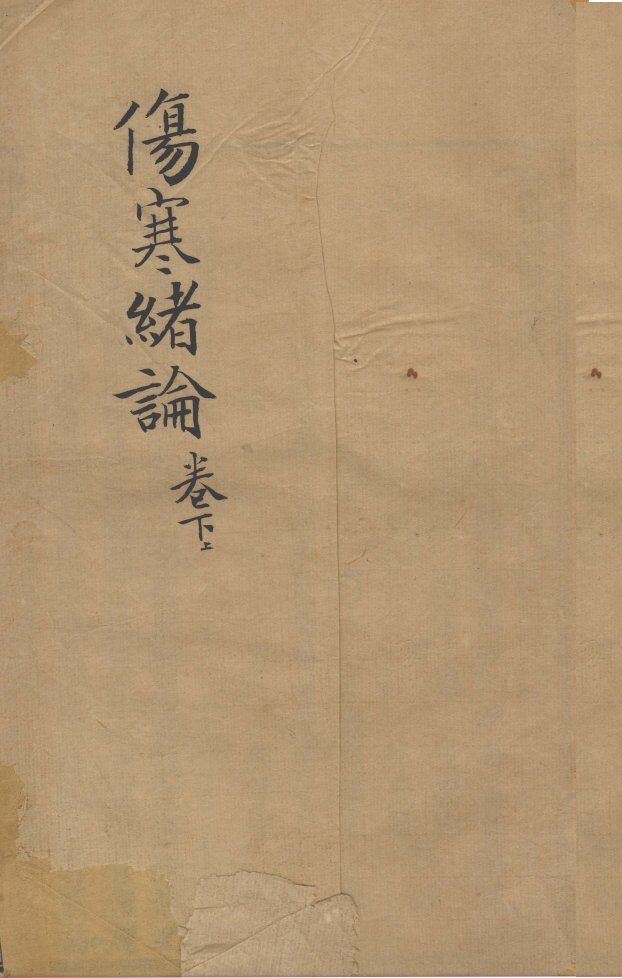 傷寒緒論卷下上